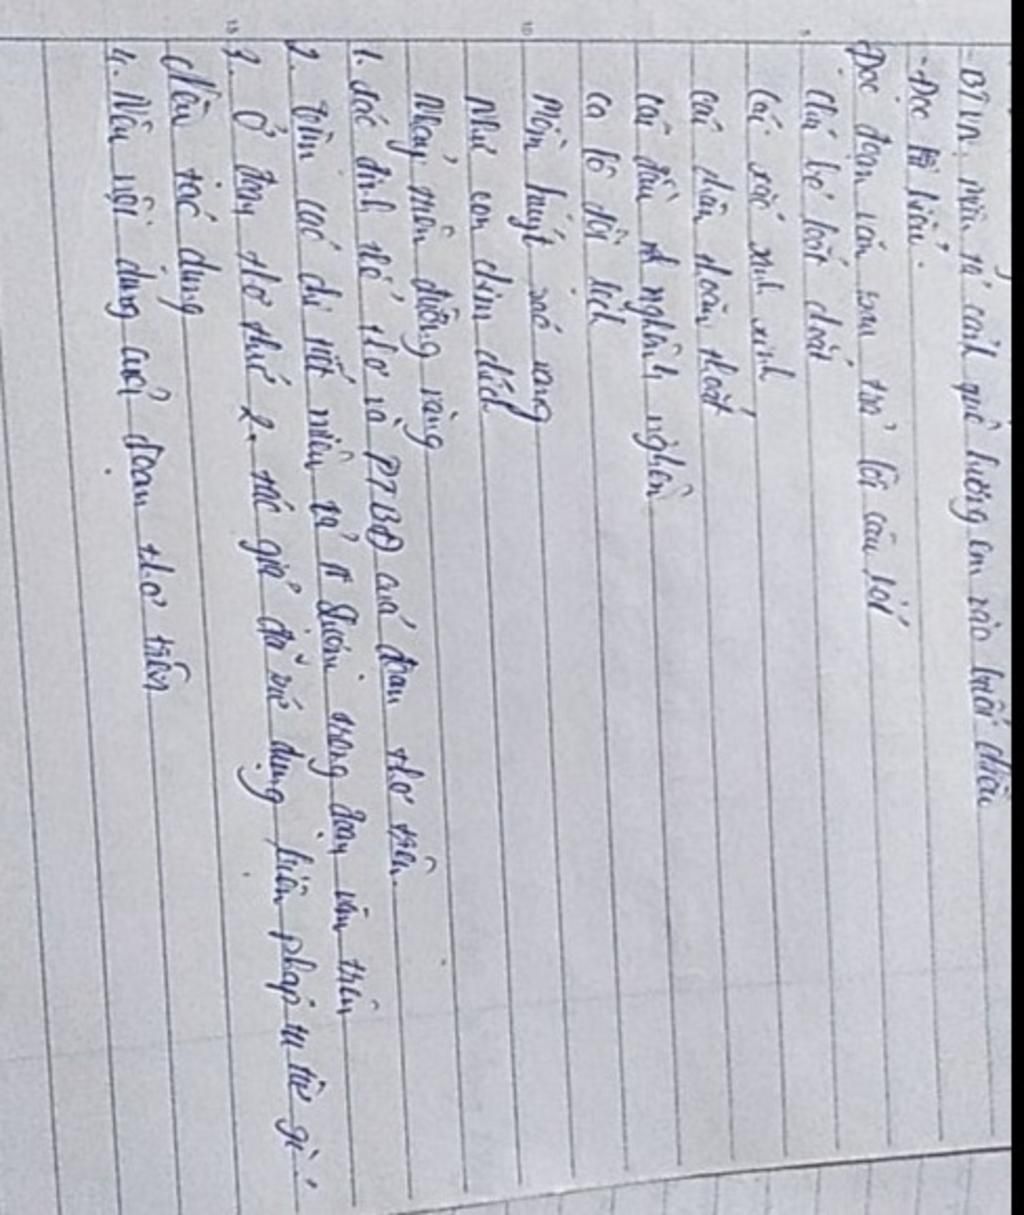 - BTVN: miêu tả cảnh quê hương em vào buổi chiều
- Đọc hiểu.
Đọc đoạn văn sau trả lời câu hỏi
Chú bé loắt choắt
Cái xắc xinh xinh
Cái chân thoăn thoắt
Cái đầu nghênh nghênh
Ca lô đội lệch
Mồm huýt sáo vang
Như con chim chích
Nhảy trên đường vàng
1. Xác định thể thơ và PTBĐ của đoạn thơ trên.
2. Tìm các chi tiết miêu tả Lượm trong đoạn văn trên
3. Ở đoạn thơ thứ 2. tác giả đã sử dụng biện pháp tu từ gì?
Nêu tác dụng
4. Nêu nội dung của đoạn thơ trên
10
15